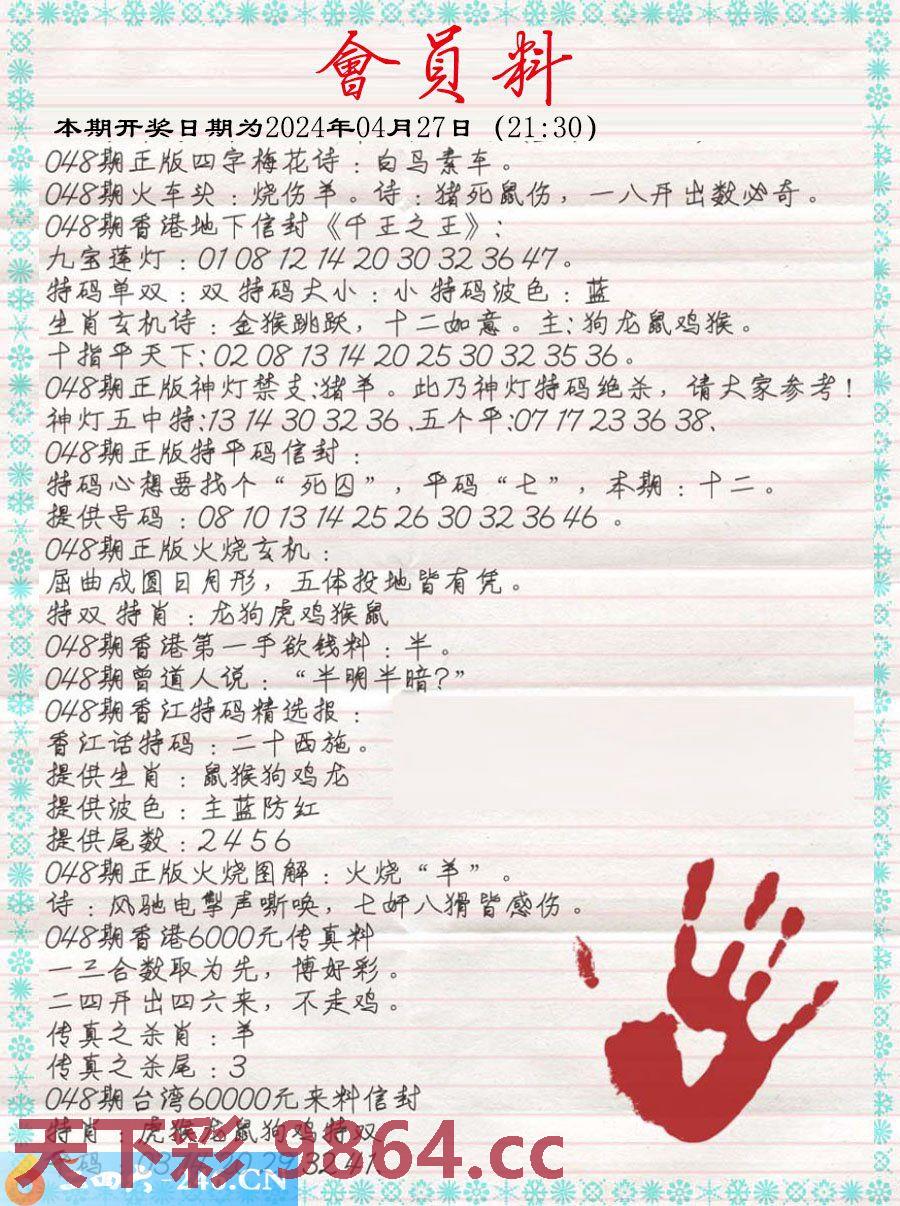 會員料
本期开奖日期为2024年04月27日（21:30）
048期正版四字梅花诗：白马素车。
048期火车头：烧伤羊。诗：猪死鼠伤，一八开出数必奇。
048期香港地下信封《千王之王》：
九宝莲灯：01 08 12 14 20 30 32 36 47。
特码单双：双 特码大小：小 特码波色：蓝
生肖玄机诗：金猴跳跃，十二如意。主：狗龙鼠鸡猴。
十指平天下：02 08 13 14 20 25 30 32 35 36。
048期正版神灯禁支:猪羊。此乃神灯特码绝杀，请大家参考！
神灯五中特:13 14 30 32 36、五个平:07 17 23 36 38、
048期正版特平码信封：
特码心想要找个“死囚”，平码“七”，本期：十二。
提供号码：08 10 13 14 25 26 30 32 36 46 。
048期正版火烧玄机：
屈曲成圆日月形，五体投地皆有凭。
特双 特肖：龙狗虎鸡猴鼠
048期香港第一手欲钱料：半。
048期曾道人说：“半明半暗?”
048期香江特码精选报：
香江话特码：二十西施。
提供生肖：鼠猴狗鸡龙
提供波色：主蓝防红
提供尾数：2 4 5 6
048期正版火烧图解：火烧“羊”。
诗：风驰电掣声嘶唤，七奸八猾皆感伤。
048期香港6000元传真料
一三合数取为先，博好彩。
二四开出四六来，不走鸡。
传真之杀肖：羊
传真之杀尾：3
048期台湾60000元来料信封
特肖：虎猴龙鼠狗鸡特双
天下彩 9864.cc
32 41.
246.CN